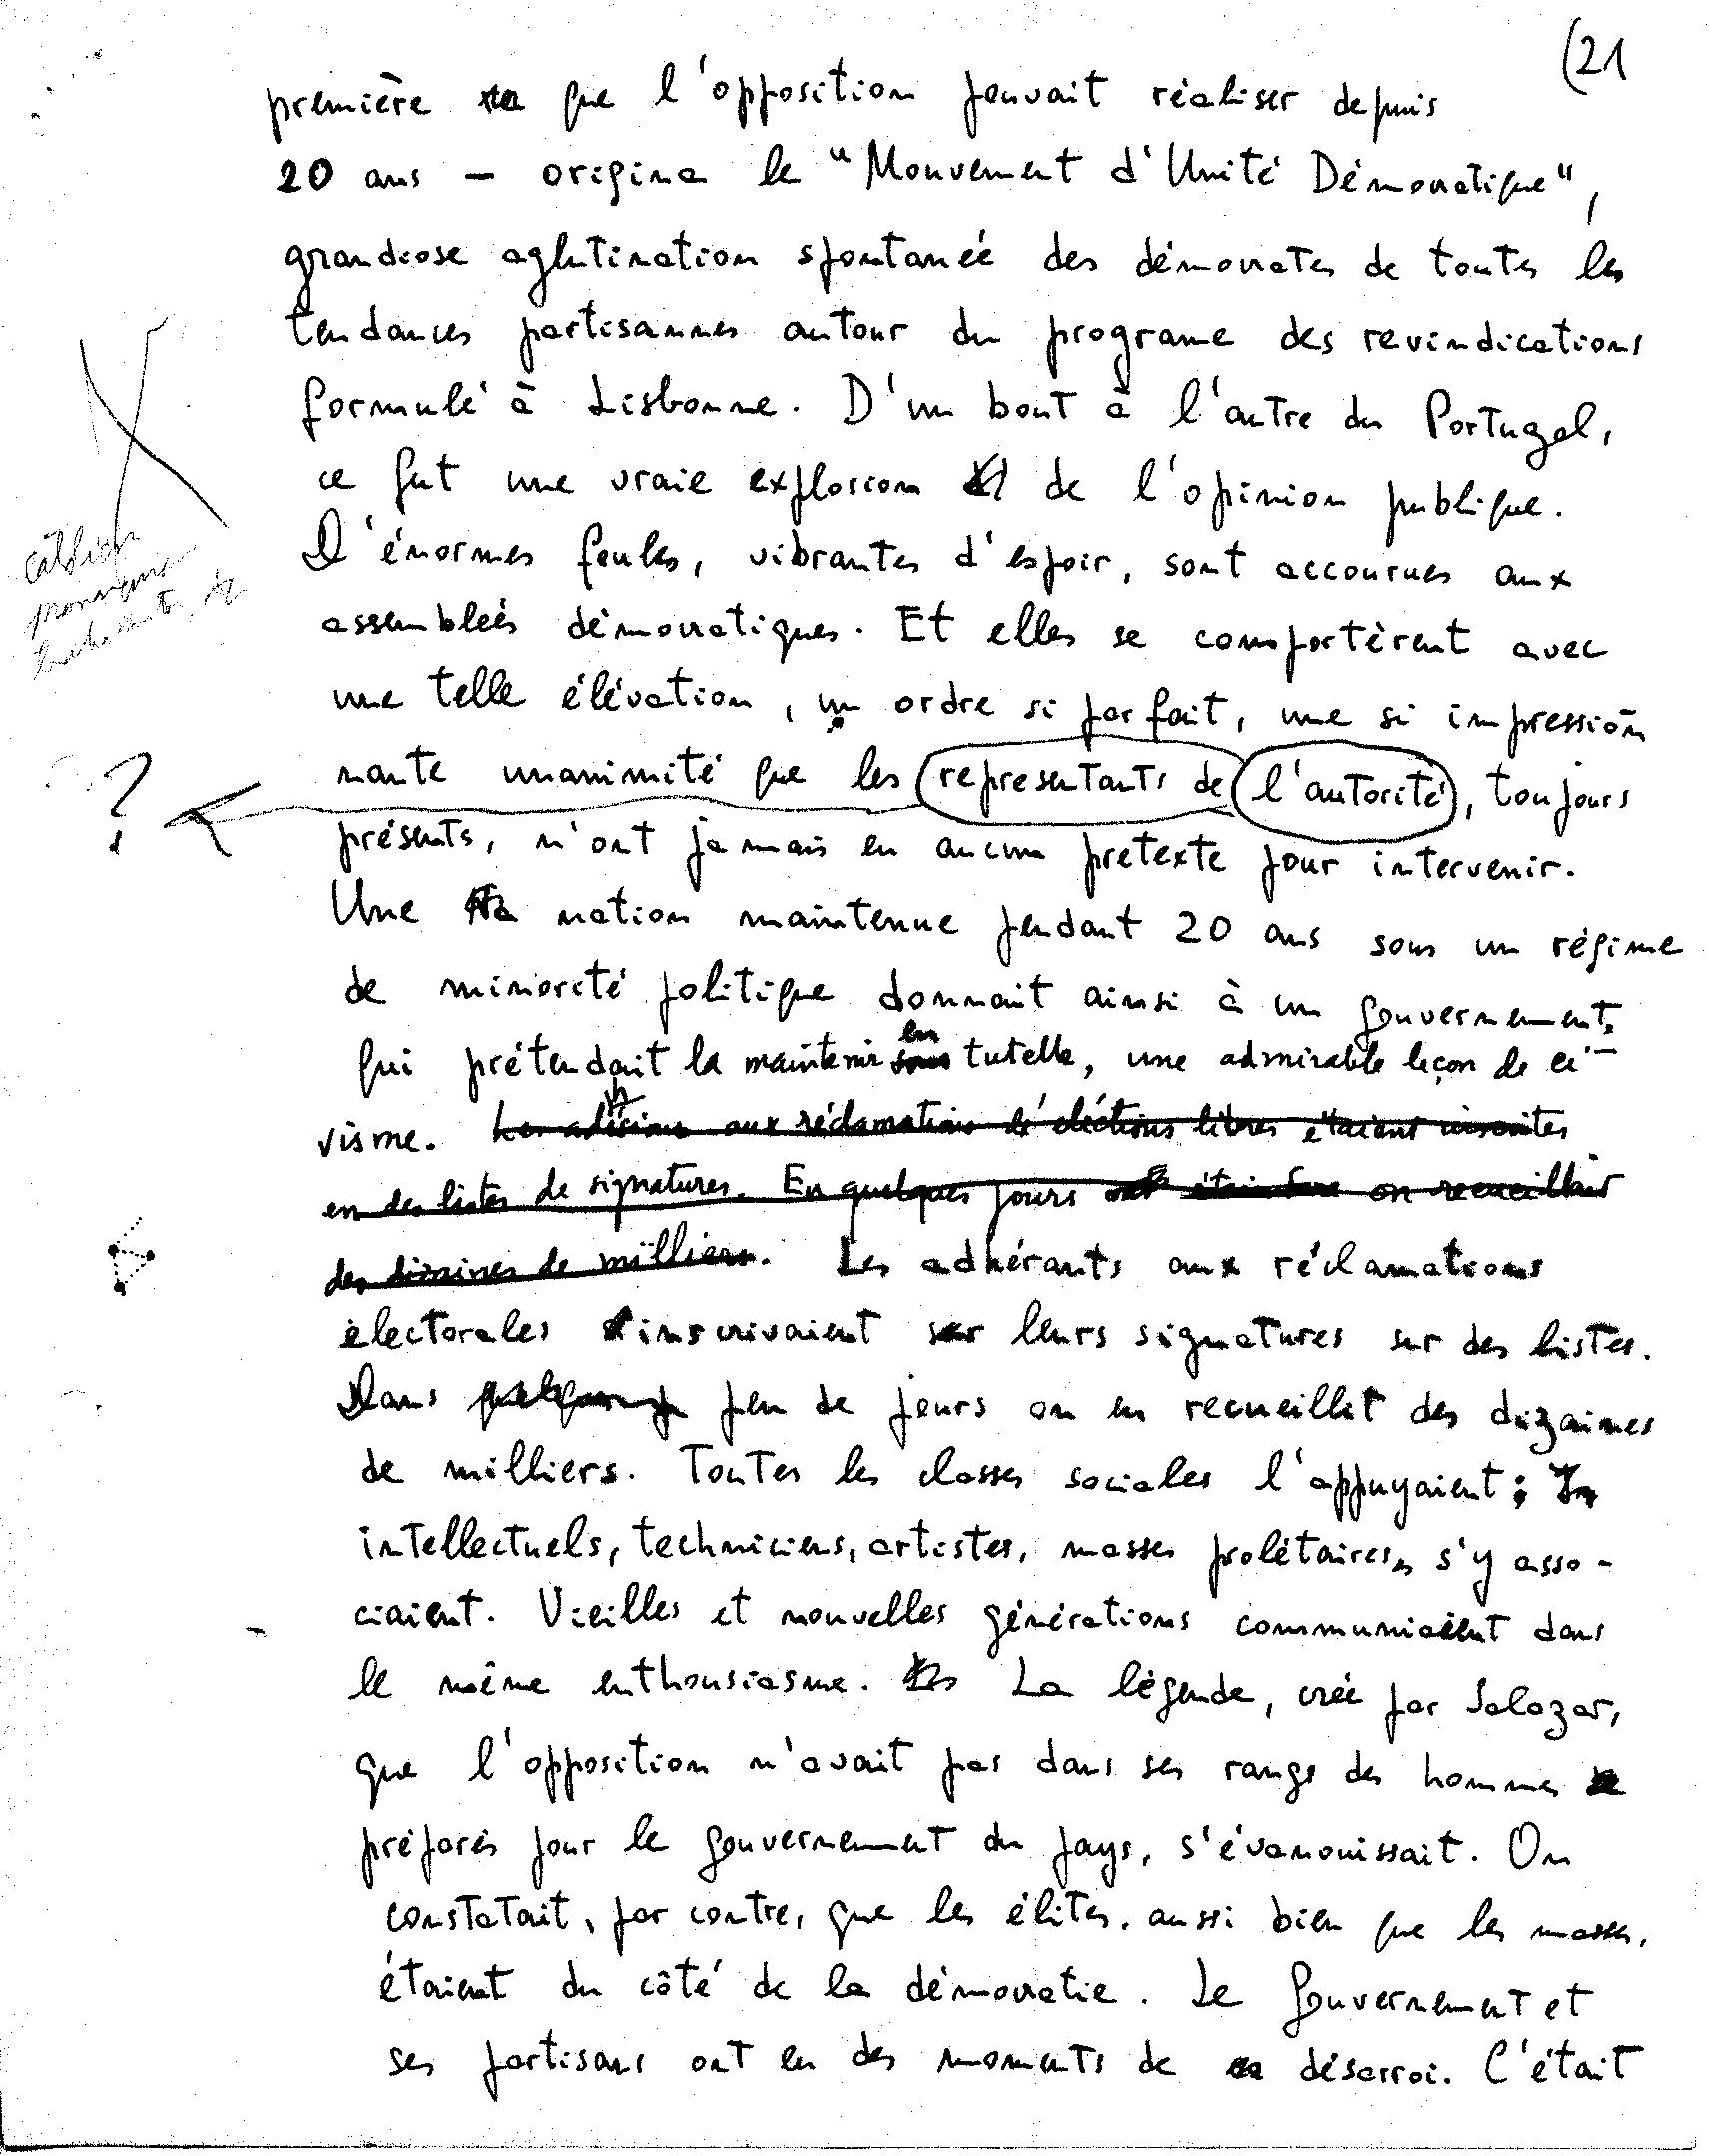 (21
première que l'opposition pouvait réaliser depuis
20 ans – origina le "Mouvement d'Unité Démocratique",
grandiose aglutination spontaneé des démocrates de toutes les
tendances partisannes autour du programe des revindications
formulé à Lisbonne. D'un bout à l'autre du Portugal,
ce fut une vraie explosion de l'opinion publique.
D'énormes foules, vibrantes d'espoir, sont accourues aux
assembleés démocratiques. Et elles se comportèrent avec
une telle élévation, un ordre si parfait, une si impression
nante unanimité que les representants de l'autorité, toujours
?
présents, n'ont jamais eu aucun pretexte pour intervenir.
Une nation maintenue pendant 20 ans sous un régime
de minorité politique donnait ainsi à un gouvernement,
qui prétendait la maintenir en tutelle, une admirable leçon de ci-
visme. Les adhésions aux réclamations d'éléctions libres étaient inscrites
en des listes de signatures. En quelques jours on recueillait
des dizaines de milliers. Les adhérants aux réclamations
électorales inscrivaient leurs signatures sur des listes.
Dans peu de jours on en recueillit des dizaines
de milliers. Toutes les classes sociales l'appuyaient:
intellectuels, techniciens, artistes, masses prolétaires, s'y asso-
ciaient. Vieilles et nouvelles générations communiaient dans
le même enthousiasme. La légende, creé par Salazar,
que l'opposition n'avait pas dans ses rangs des hommes
préparés pour le gouvernement du pays, s'évanouissait. On
constatait, par contre, que les élites, aussi bien que les masses,
étaient du côté de la démocratie. Le Gouvernement et
ses partisans ont eu des moments de désarroi. C'était